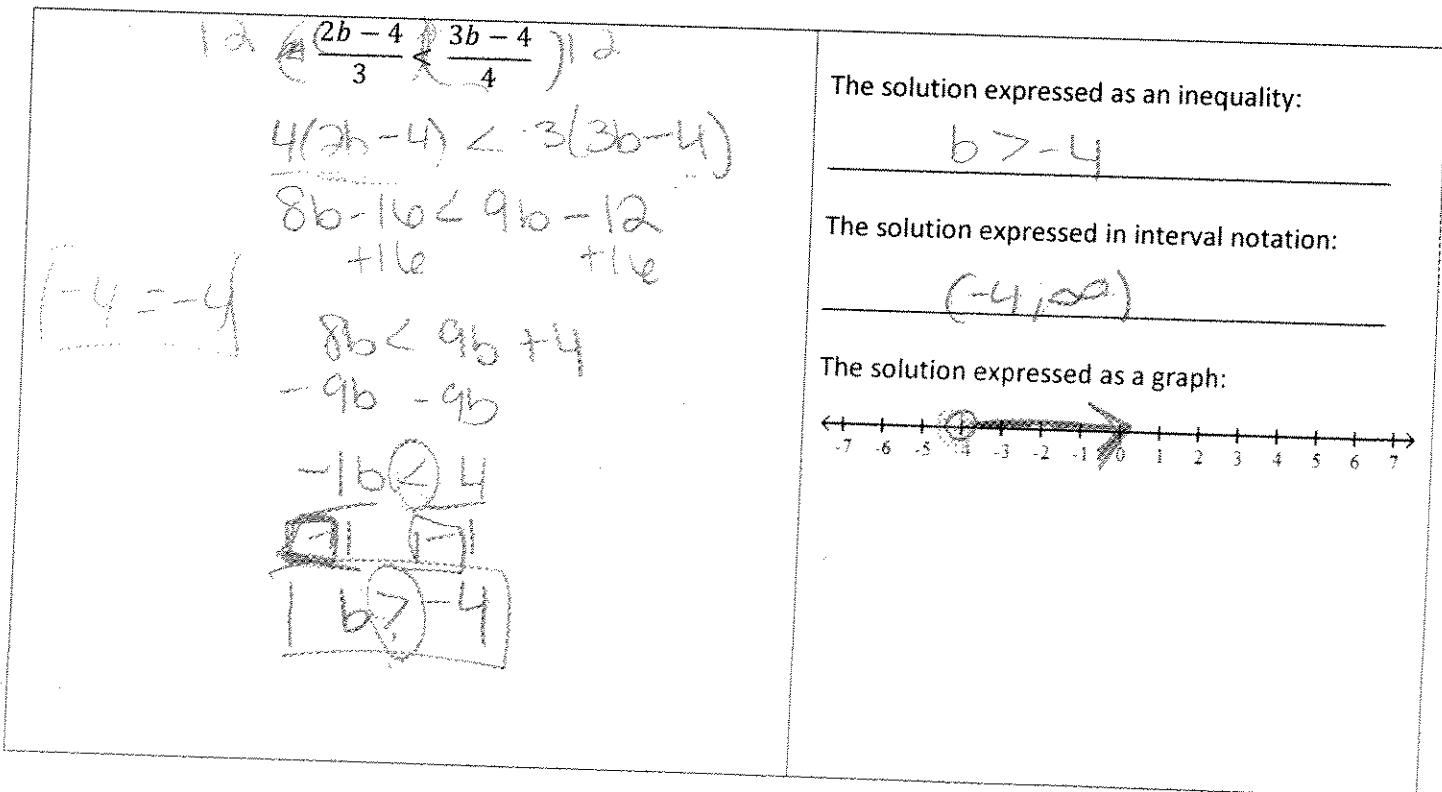 12 ( (2b − 4)/3 < (3b − 4)/4 ) 12
4(2b-4) < 3(3b-4)
8b-16 < 9b-12
+16 +16
-4 = -4
8b < 9b +4
-9b -9b
-1b < 4
-1 -1
b > -4
The solution expressed as an inequality:
b > -4
The solution expressed in interval notation:
(-4, ∞)
The solution expressed as a graph:
-7 -6 -5 -4 -3 -2 -1 0 1 2 3 4 5 6 7